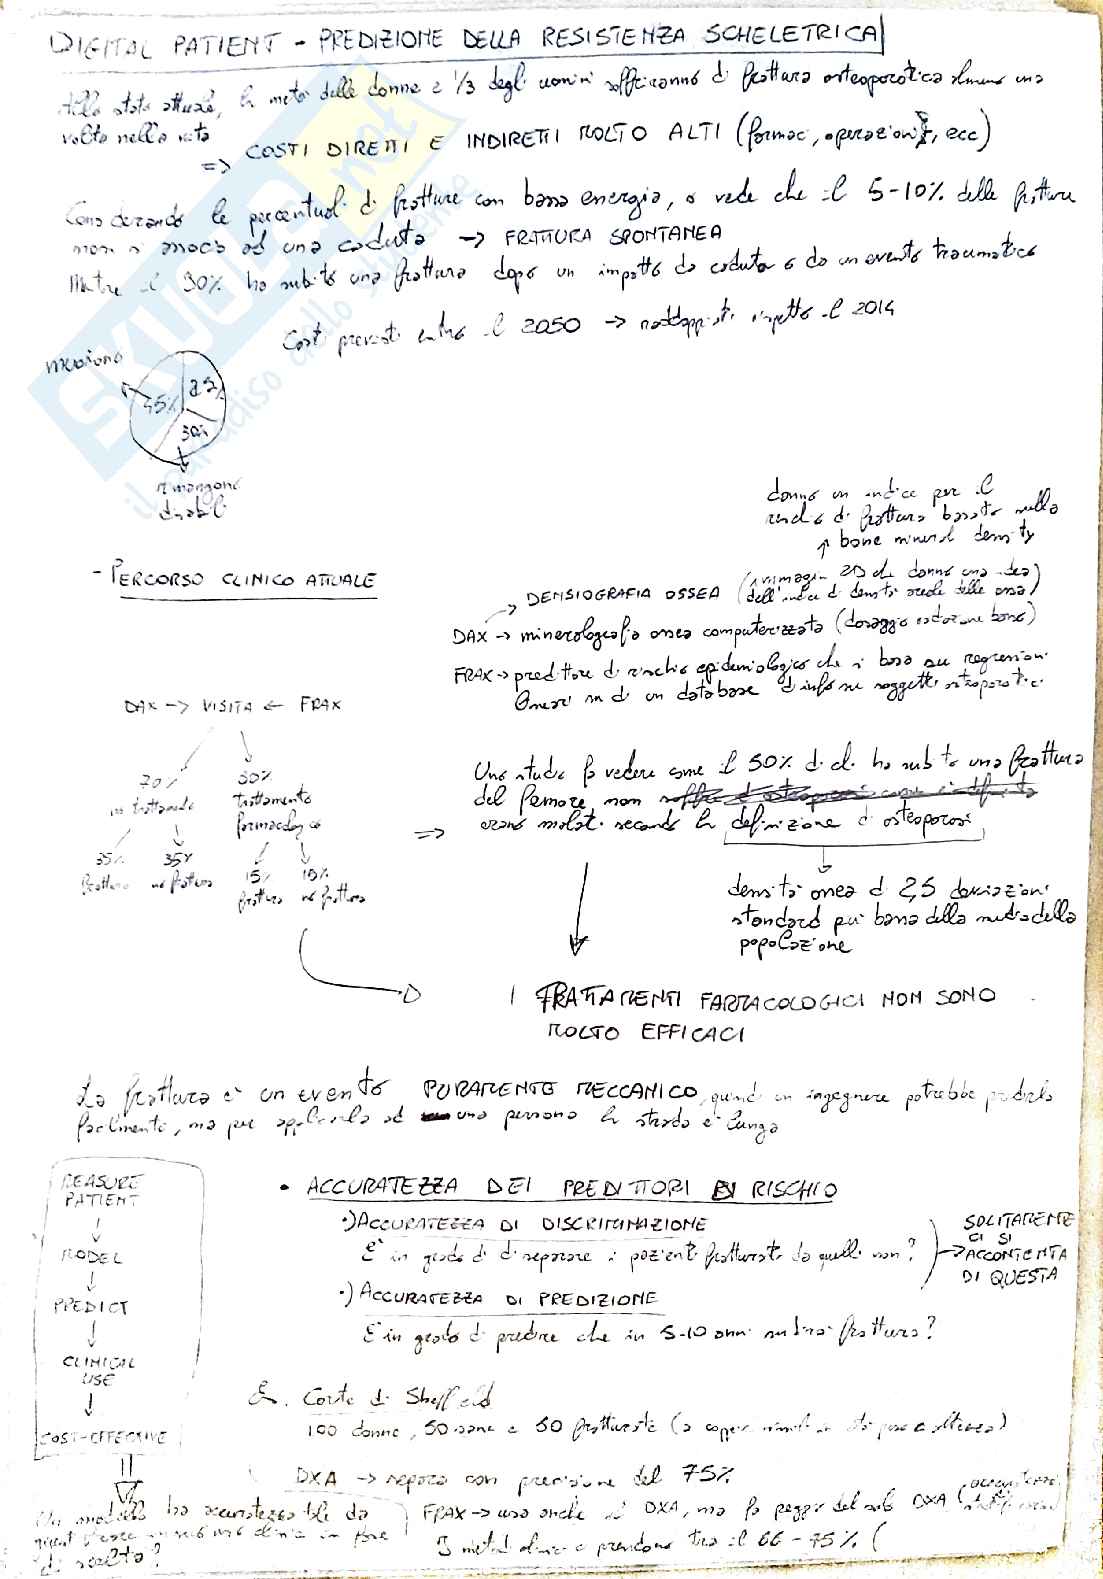 DIGITAL PATIENT - PREDIZIONE DELLA RESISTENZA SCHELETRICA
Allo stato attuale, la metà delle donne e 1/3 degli uomini soffriranno di frattura osteoporotica almeno una
volta nella vita
=> COSTI DIRETTI E INDIRETTI MOLTO ALTI (farmaci, operazioni, ecc)
Considerando le percentuali di fratture con bassa energia, si vede che il 5-10% delle fratture
non si associa ad una caduta -> FRATTURA SPONTANEA
Mentre il 90% ha subito una frattura dopo un impatto da caduta o da un evento traumatico
Costi previsti entro il 2050 -> raddoppiati rispetto il 2014
muoiono
45%
25%
30%
rimangono
disabili
danno un indice per il
rischio di frattura basato sulla
bone mineral density
- PERCORSO CLINICO ATTUALE
-> DENSIOGRAFIA OSSEA (immagini 2D che danno una idea
dell'indice di densità areale delle ossa)
DAX -> minerolografia ossea computerizzata (dosaggio radiazione basso)
FRAX -> predittore di rischio epidemiologico che si basa su regressioni
lineari su di un database d'info su soggetti osteoporotici
DAX -> VISITA <- FRAX
70%
non trattando
30%
trattamento
farmacologico
35%
frattura
35%
no frattura
15%
frattura
15%
no frattura
Uno studio fa vedere come il 50% di chi ha subito una frattura
del femore, non
=> erano malati secondo la definizione di osteoporosi
densità ossea di 2,5 deviazioni
standard più bassa della media della
popolazione
I TRATTAMENTI FARMACOLOGICI NON SONO
MOLTO EFFICACI
La frattura è un evento PURAMENTE MECCANICO, quindi un ingegnere potrebbe predirla
facilmente, ma per applicarla ad una persona la strada è lunga
MEASURE
PATIENT
MODEL
PREDICT
CLINICAL
USE
COST-EFFECTIVE
• ACCURATEZZA DEI PREDITTORI DI RISCHIO
•) ACCURATEZZA DI DISCRIMINAZIONE
È in grado di separare i pazienti fratturati da quelli non?
SOLITAMENTE
CI SI
ACCONTENTA
DI QUESTA
•) ACCURATEZZA DI PREDIZIONE
È in grado di predire che in 5-10 anni subirai frattura?
Es. Coorte di Sheffield
100 donne, 50 sane e 50 fratturate (a coppie simili in età peso e altezza)
DXA -> separa con precisione del 75%
FRAX -> usa anche il DXA, ma fa peggio del solo DXA
I metodi clinici prendono tra il 66-75% (
Un modello ha accuratezza da